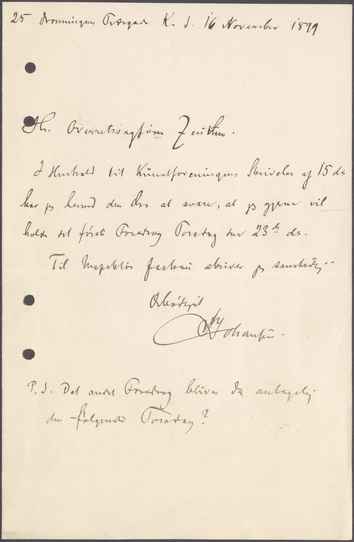 25 Dronningens Tværgade K. d. 16 November 1879
Hr. Overretssagfører Zeuthen.
I Henhold til Kunstforeningens Skrivelse af 15 ds
har jeg herved den Ære at svare, at jeg gjerne vil
holde det første Foredrag Torsdag den 23de ds.
Til Inspektør skriver jeg samtidig.
Ærbødigst
P. S. Det andet Foredrag bliver da antagelig
den følgende Torsdag?